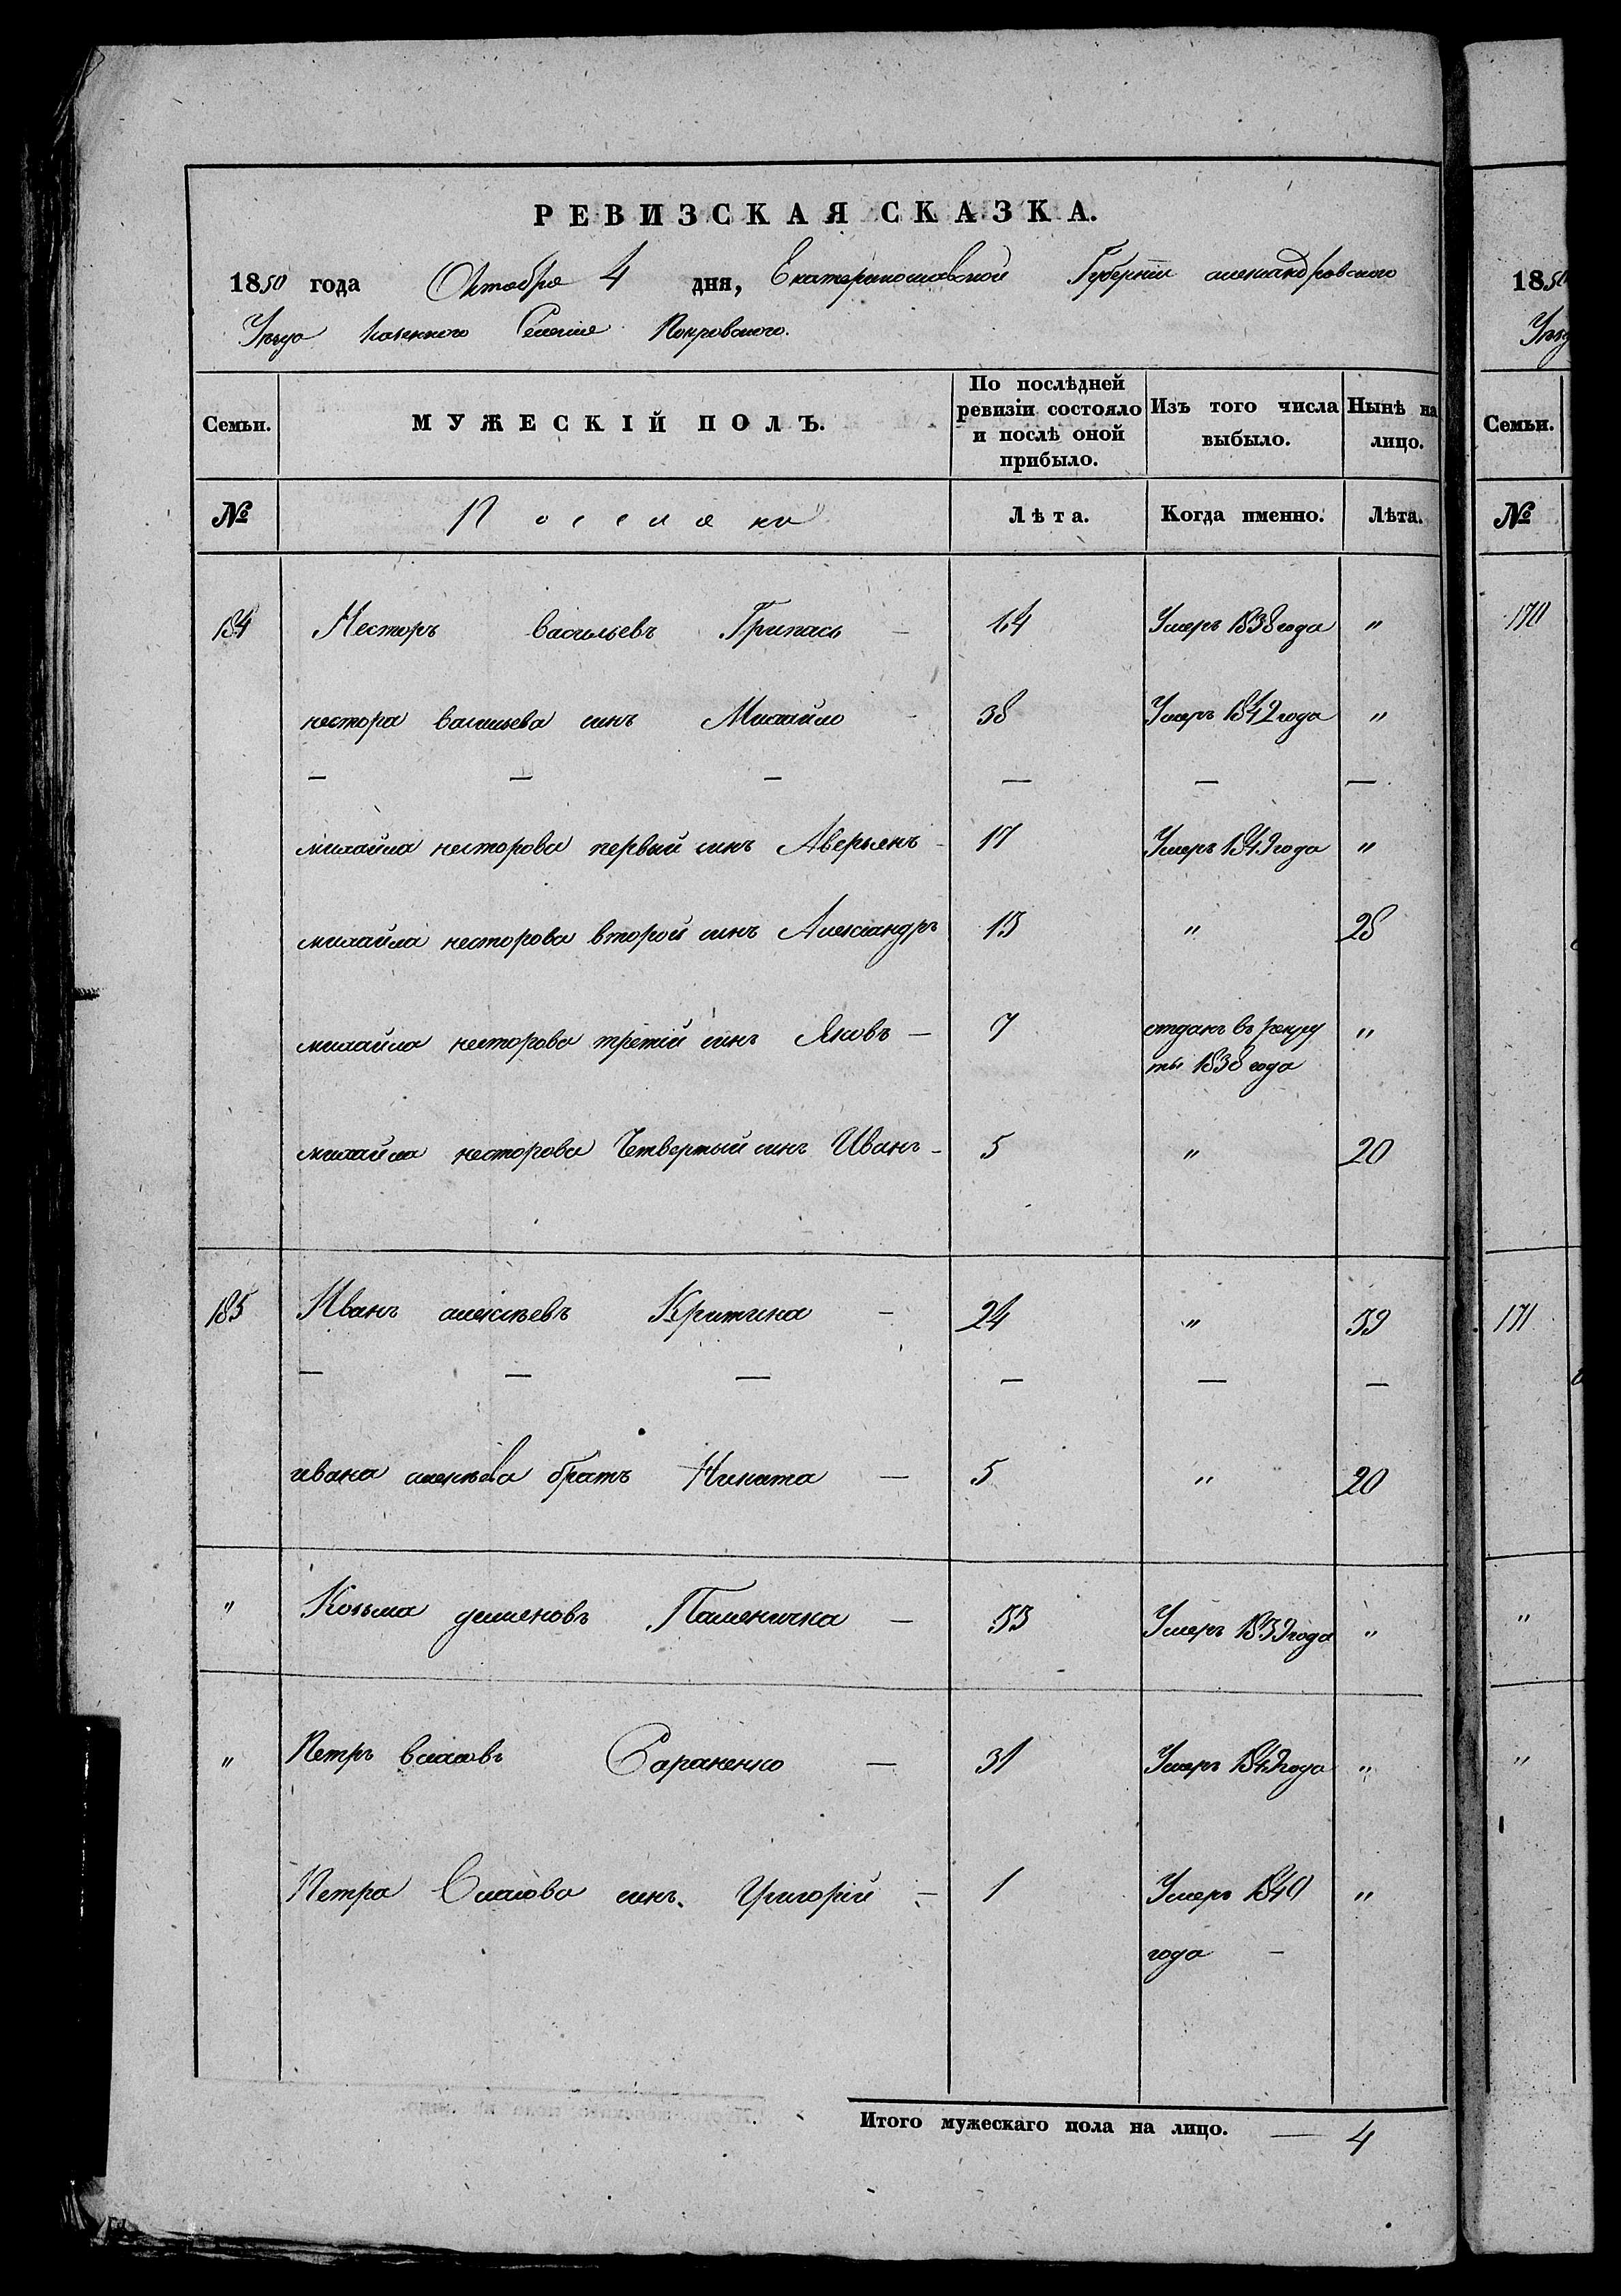 РЕВИЗСКАЯ СКАЗКА.
1850 года Октября 4 дня, Екатеринославской Губернiи александровского
Уезда Казенного Селенiя Покровского.
Семьи. МУЖЕСКIЙ ПОЛЪ. По послѣдней ревизiи состояло и послѣ оной прибыло. Изъ того числа выбыло. Нынѣ на лицо.
№ Поселяни Лѣта. Когда именно. Лѣта.
184 Несторъ васильевъ Грипась — 64 Умеръ 1838 года "
нестора васильева синъ Михайло - 38 Умеръ 1842 года "
— — — — — —
михайла несторова первый синъ Аверьянъ - 17 Умеръ 1849 года "
михайла несторова второй синъ Александръ 13 " 28
михайла несторова третiй синъ Яковъ — 7 отданъ въ рекру
ты 1838 года "
михайла несторова Четвертый синъ Иванъ - 5 " 20
185 Иванъ алексѣевъ Критина — 24 " 39
— — — — — —
ивана алексѣева братъ Никита — 5 " 20
" Козьма демьяновъ — 53 Умеръ 1839 года "
" Петръ власовъ — 31 Умеръ года "
Петра Власова синъ Григорiй — 1 Умеръ 1840
года — "
Итого мужескаго пола на лицо. — 4
185
Уезд
Семьи.
№
170
171
"
"